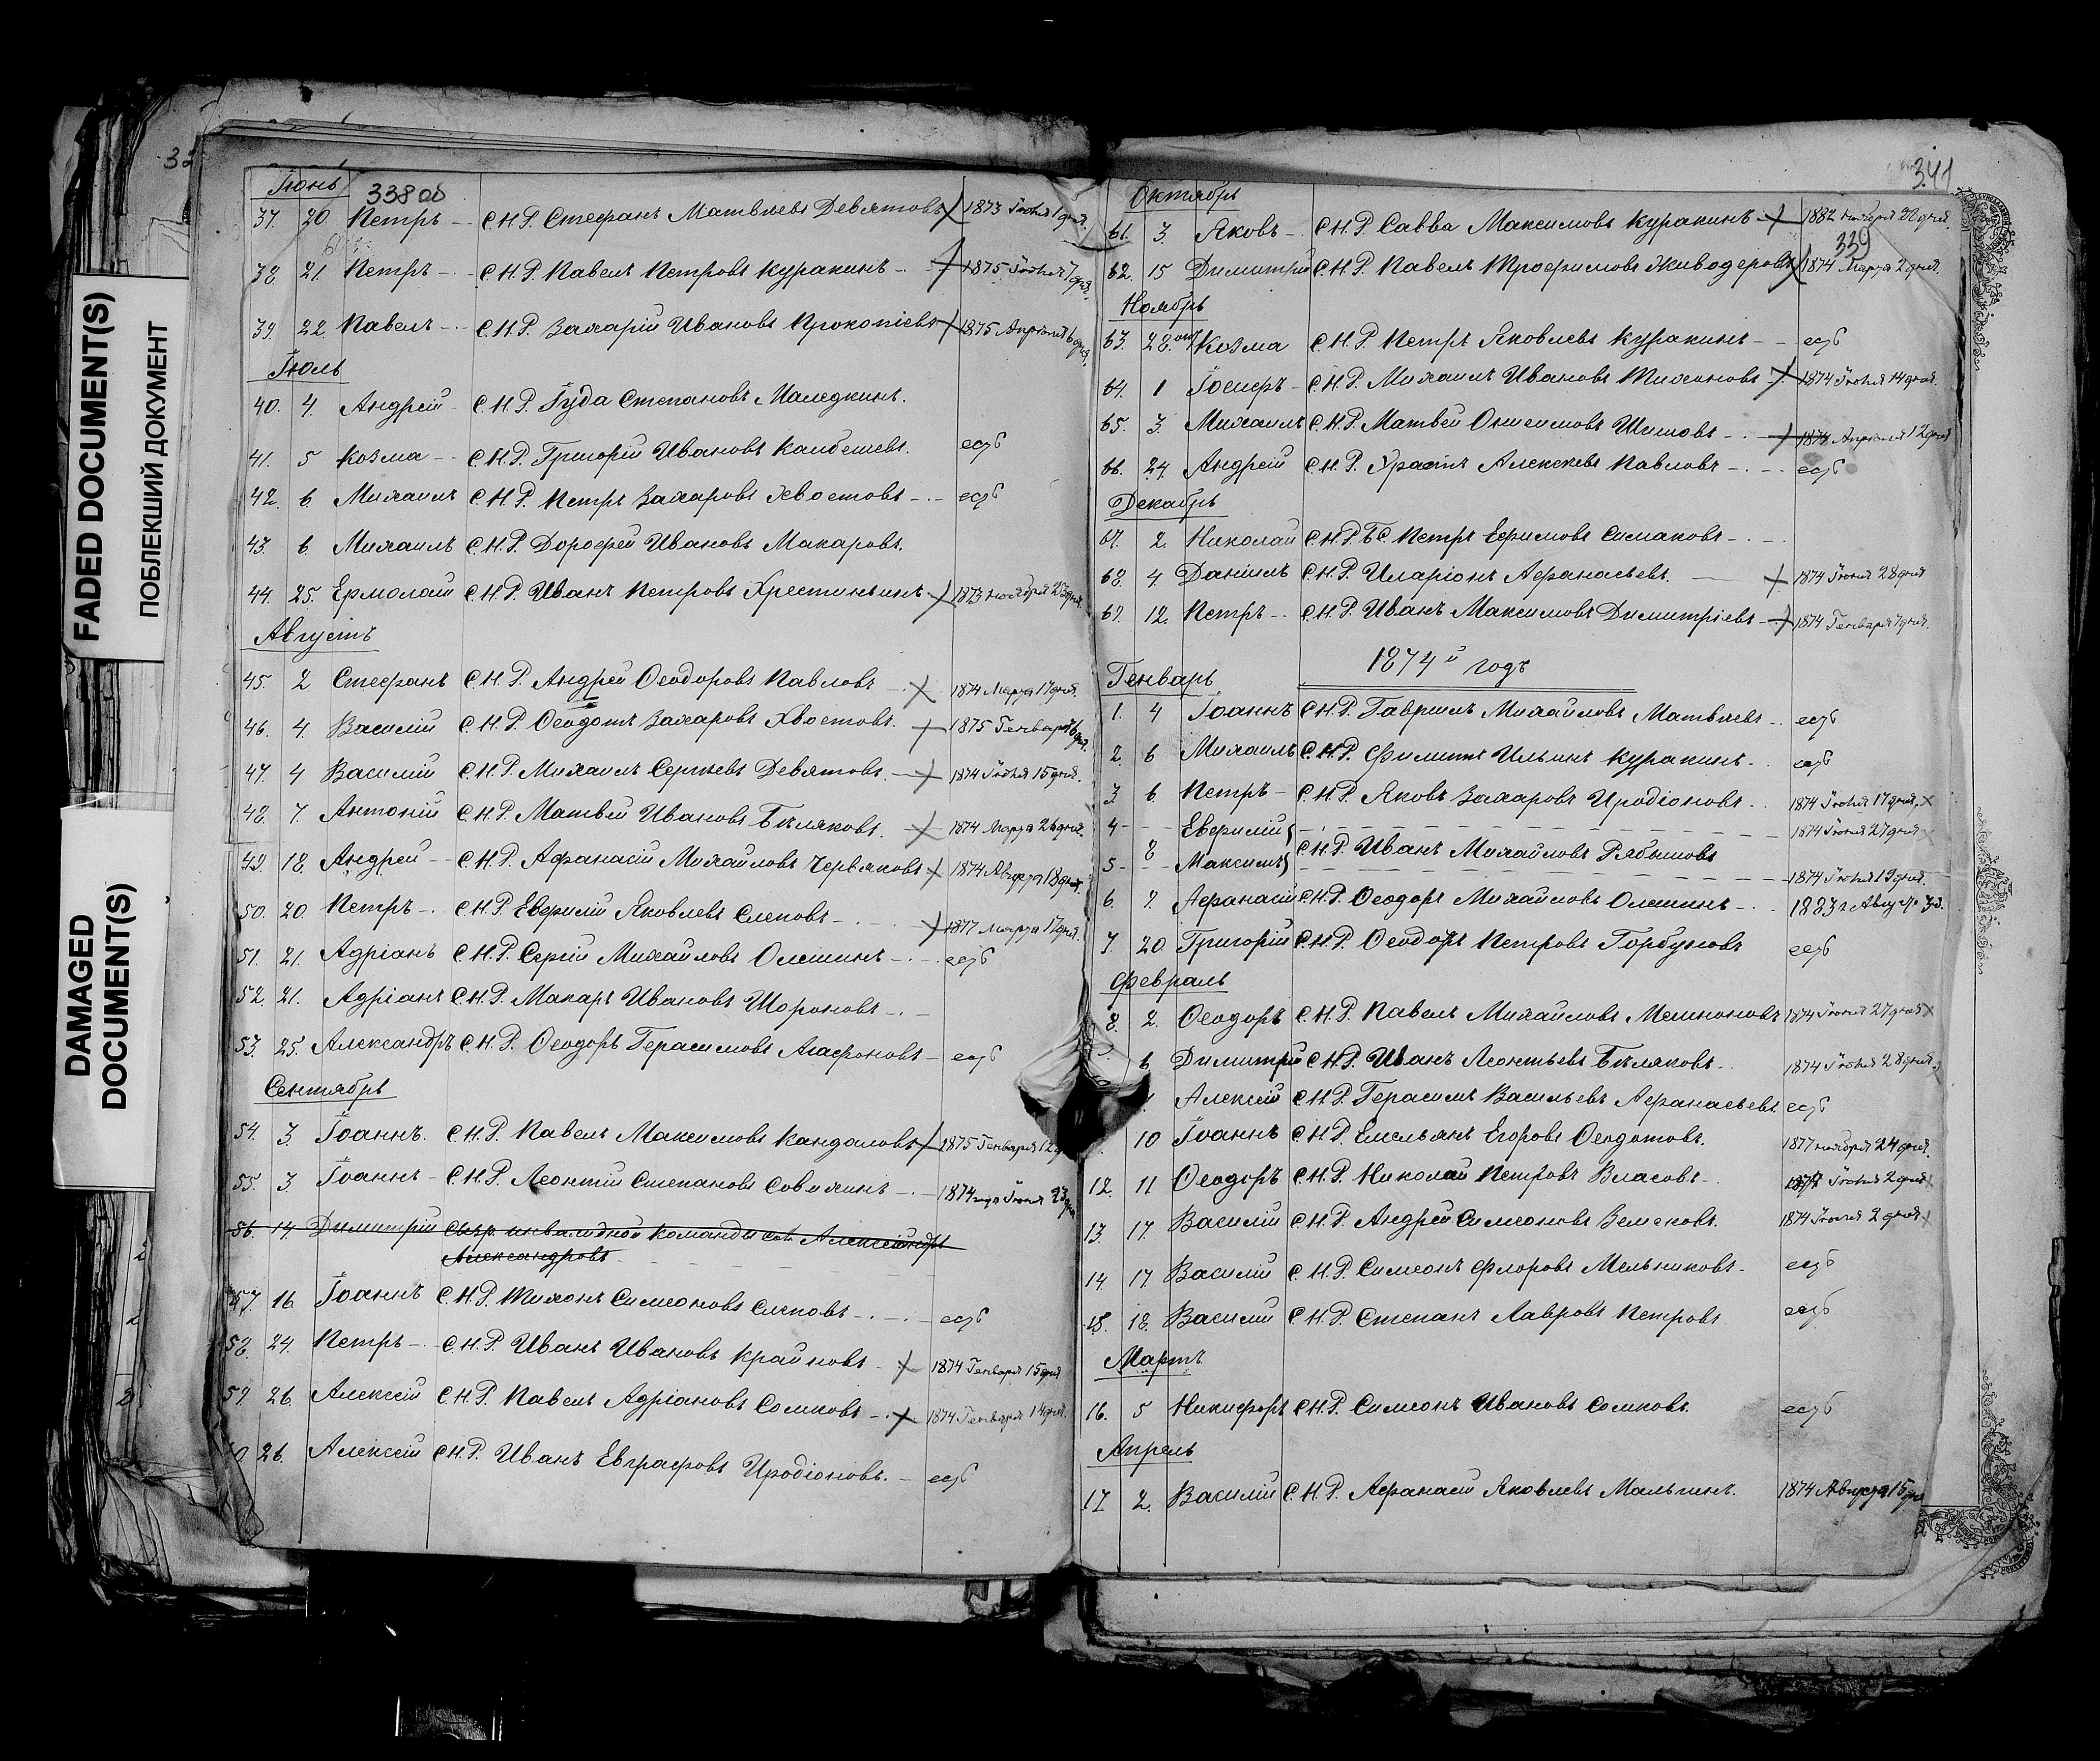 FADED DOCUMENT(S)
ПОБЛЕКШИЙ ДОКУМЕНТ
DAMAGED
DOCUMENT(S)
338 об
Іюнь
37. 20 Петръ - С.Н.Р. Стефанъ Матвѣевъ Девятовъ 1873 Іюня 1 дня.
38. 21. Петръ - С.Н.Р. Павелъ Петровъ Куракинъ - 1875 Іюня 7 дня.
39. 22. Павелъ - С.Н.Р. Захарій Ивановъ Прокопіевъ 1875 Апрѣля 6 дня.
Іюль
40. 4. Андрей - С.Н.Р. Іуда Степановъ Маледкинъ.
41. 5 Козма - С.Н.Р. Григорій Ивановъ Каибышевъ. есть
42. 6. Михаилъ С.Н.Р. Петръ Захаровъ Хвостовъ - есть
43. 6. Михаилъ С.Н.Р. Дорофей Ивановъ Макаровъ.
44. 25. Ермолай С.Н.Р. Иванъ Петровъ Хрестинъинъ 1873 Ноября 25 дня.
Августъ
45. 2 Стефанъ С.Н.Р. Андрей Ѳеодоровъ Павловъ 1874 Марта 17 дня.
46. 4. Василій С.Н.Р. Ѳеодотъ Захаровъ Хвостовъ. 1875 Генваря 6 дня.
47. 4 Василій С.Н.Р. Михаилъ Сергѣевъ Девятовъ. 1874 Іюня 15 дня.
48. 7. Антоній С.Н.Р. Матвей Ивановъ Бѣляковъ. 1874 Марта 26 дня.
49. 18. Андрей - С.Н.Р. Афанасій Михайловъ Червяковъ 1874 Августа 18 дня.
50. 20. Петръ - С.Н.Р. Евфимій Яковлевъ Слеповъ - 1877 Марта 17 дня.
51. 21. Адріанъ С.Н.Р. Сергій Михайловъ Олешинъ - есть
52. 21. Адріанъ С.Н.Р. Макаръ Ивановъ Шороновъ -
53. 25. Александръ С.Н.Р. Ѳеодоръ Герасимовъ Агафоновъ - есть
Сентябрь
54. 3. Іоаннъ. С.Н.Р. Павелъ Максимовъ Кандаловъ 1875 Генваря 12
55. 3. Іоаннъ - С.Н.Р. Леонтій Степановъ Совихинъ - 1874 года Іюня 23 дня
56. 14 Димитрій инвалидной команды
Александровъ
57. 16 Іоаннъ С.Н.Р. Тихонъ Симеоновъ Слеповъ - есть
58. 24. Петръ - С.Н.Р. Иванъ Ивановъ Крайновъ - 1874 Генваря 15 дня
59. 26. Алексій С.Н.Р. Павелъ Адріановъ Сомковъ - 1874 Генваря 14 дня.
26. Алексій С.Н.Р. Иванъ Евграфовъ Иродіоновъ. - есть
341
339
Октябрь
61. 3. Яковъ - С.Н.Р. Савва Максимовъ Куракинъ 1882 Ноября 28 дня.
62. 15 Димитрій С.Н.Р. Павелъ Трофимовъ Живодеровъ 1874 Марта 2 дня.
Ноябрь
63. 28. окт Козма С.Н.Р. Петръ Яковлевъ Куракинъ - есть
64. 1 Іосифъ - С.Н.Р. Михаилъ Ивановъ Тихоновъ 1874 Іюня 14 дня.
65. 3. Михаилъ С.Н.Р. Матвей Онисимовъ Шитовъ - 1874 Апрѣля 12 дня
66. 24. Андрей С.Н.Р. Алексѣевъ Павловъ - есть
Декабрь
67. 2. Николай С.Н.Р. Б.С. Петръ Ефимовъ Симаковъ -
68. 4. Даніилъ С.Н.Р. Иларіонъ Афанасьевъ. 1874 Іюня 28 дня
69. 12. Петръ - С.Н.Р. Иванъ Максимовъ Димитріевъ 1874 Генваря 7 дня.
1874й годъ
Генварь
1. 4 Іоаннъ С.Н.Р. Гавриилъ Михайловъ Матвѣевъ есть
2. 6 Михаилъ С.Н.Р. Филиппъ Ильинъ Куракинъ. есть
3. 6. Петръ - С.Н.Р. Яковъ Захаровъ Иродіоновъ. 1874 Іюня 17 дня.
4 - Евфимій 1874 Іюня 27 дня
8 С.Н.Р. Иванъ Михайловъ Рябышовъ
5 - Максимъ 1874 Іюня 19 дня.
6. 7. Афанасій С.Н.Р. Ѳеодоръ Михайловъ Олешинъ - 1883 г Авгус 3 д.
7. 20 Григорій С.Н.Р. Ѳеодоръ Петровъ Горбуновъ есть
Февраль
8. 2. Ѳеодоръ С.Н.Р. Павелъ Михайловъ Мешноновъ 1874 Іюня 27 дня
6. Димитрій С.Н.Р. Иванъ Леонтьевъ Бѣляковъ. 1874 Іюня 28 дня.
Алексій С.Н.Р. Герасимъ Васильевъ Афанасьевъ. есть
10 Іоаннъ С.Н.Р. Емельянъ Егоровъ Ѳеодотовъ. 1877 Ноября 24 дня.
12. 11 Ѳеодоръ С.Н.Р. Николай Петровъ Власовъ. 1874 Іюня 2 дня
13. 17. Василій С.Н.Р. Андрей Симеоновъ Земсковъ. 1874 Іюня 2 дня
14. 17. Василій С.Н.Р. Симеонъ Флоровъ Мельниковъ. есть
15. 18. Василій С.Н.Р. Степанъ Лавровъ Петровъ есть
Мартъ
16. 5 Никифоръ С.Н.Р. Симеонъ Ивановъ Сомковъ. есть
Апрель
17 2. Василій С.Н.Р. Афанасій Яковлевъ Мальгинъ. 1874 Августа 15 дня